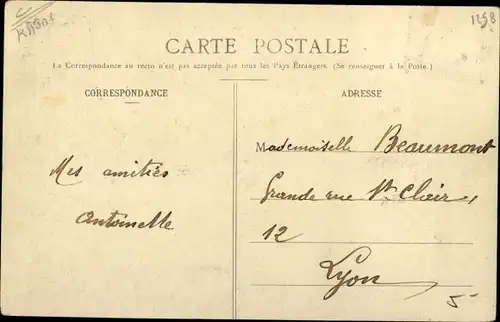 1258
CARTE POSTALE
La Correspondance au recto n'est pas acceptée par tous les Pays Étrangers. (Se renseigner à la Poste.)
CORRESPONDANCE
Mes amitiés
Antoinette
ADRESSE
Mademoiselle Beaumont
Grande rue St Clair,
12
Lyon
5-